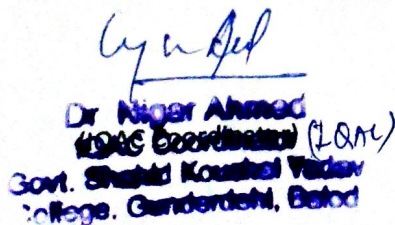 Dr Nigar Ahmed
(IQAC Coordinator) (IQAC)
Govt. Shahid Koushal Yadav
College. Gunderdehi, Balod